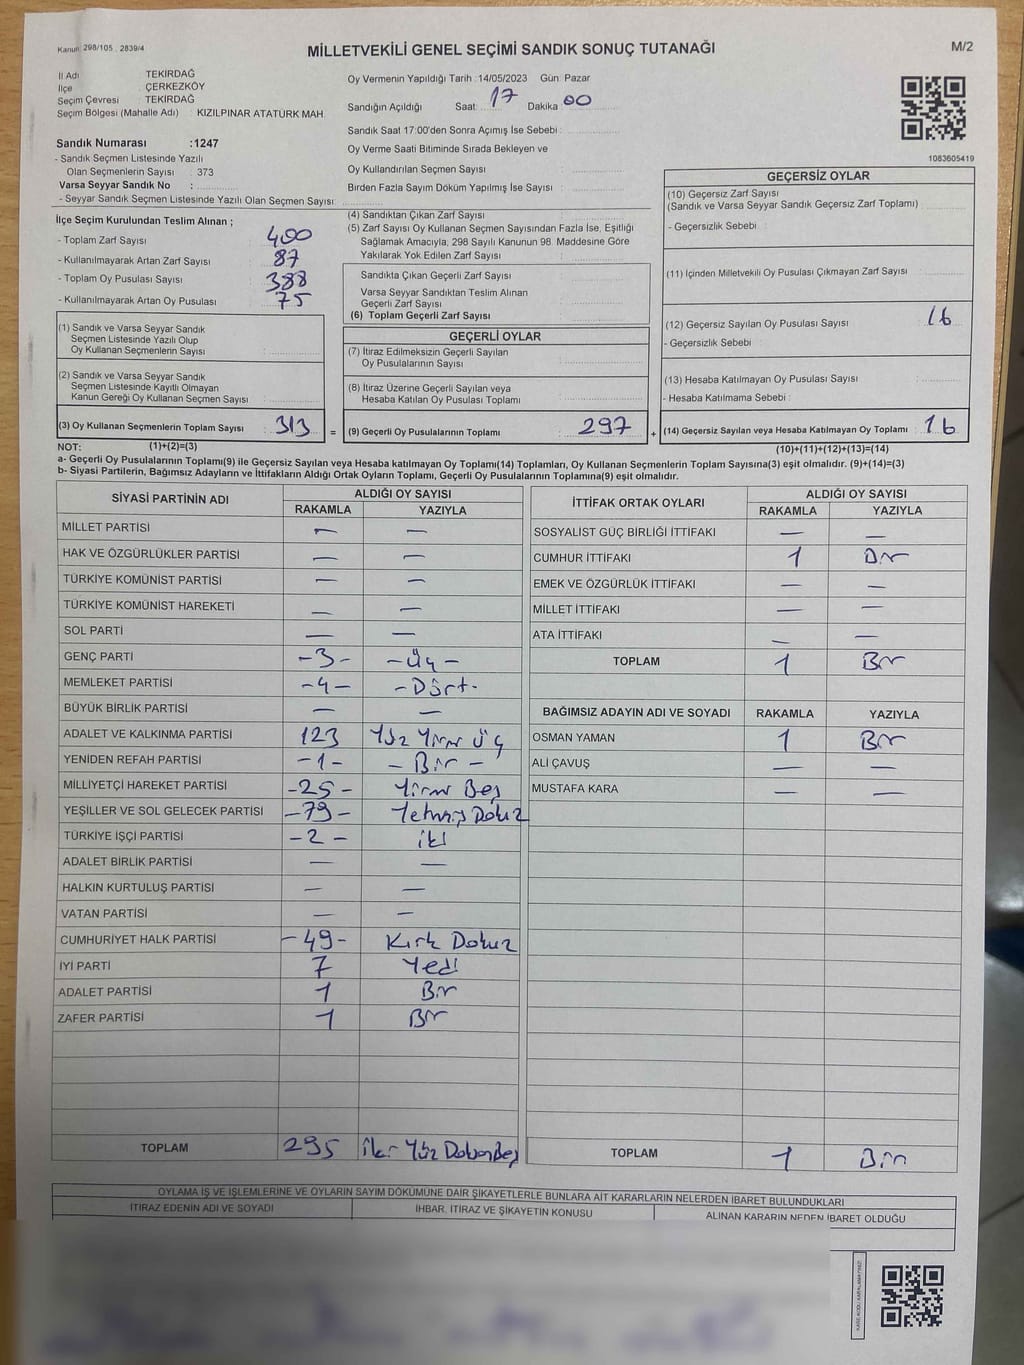 Kanun 298/105 . 2839/4
MİLLETVEKİLİ GENEL SEÇİMİ SANDIK SONUÇ TUTANAĞI
M/2
İl Adı : TEKİRDAĞ
İlçe : ÇERKEZKÖY
Seçim Çevresi : TEKİRDAĞ
Seçim Bölgesi (Mahalle Adı) : KIZILPINAR ATATÜRK MAH.
Oy Vermenin Yapıldığı Tarih :14/05/2023 Gün: Pazar
Sandığın Açıldığı Saat: 17 Dakika 00
Sandık Saat 17:00'den Sonra Açımış İse Sebebi :
Oy Verme Saati Bitiminde Sırada Bekleyen ve
Oy Kullandırılan Seçmen Sayısı :
Birden Fazla Sayım Döküm Yapılmış İse Sayısı :
1083605419
Sandık Numarası :1247
- Sandık Seçmen Listesinde Yazılı
Olan Seçmenlerin Sayısı : 373
Varsa Seyyar Sandık No :
- Seyyar Sandık Seçmen Listesinde Yazılı Olan Seçmen Sayısı:
İlçe Seçim Kurulundan Teslim Alınan ;
- Toplam Zarf Sayısı 400
- Kullanılmayarak Artan Zarf Sayısı 87
- Toplam Oy Pusulası Sayısı 388
- Kullanılmayarak Artan Oy Pusulası 75
(1) Sandık ve Varsa Seyyar Sandık
Seçmen Listesinde Yazılı Olup
Oy Kullanan Seçmenlerin Sayısı :
(2) Sandık ve Varsa Seyyar Sandık
Seçmen Listesinde Kayıtlı Olmayan
Kanun Gereği Oy Kullanan Seçmen Sayısı :
(3) Oy Kullanan Seçmenlerin Toplam Sayısı : 313 =
(4) Sandıktan Çıkan Zarf Sayısı :
(5) Zarf Sayısı Oy Kullanan Seçmen Sayısından Fazla İse, Eşitliği
Sağlamak Amacıyla, 298 Sayılı Kanunun 98. Maddesine Göre
Yakılarak Yok Edilen Zarf Sayısı :
Sandıkta Çıkan Geçerli Zarf Sayısı :
Varsa Seyyar Sandıktan Teslim Alınan
Geçerli Zarf Sayısı :
(6) Toplam Geçerli Zarf Sayısı :
GEÇERLİ OYLAR
(7) İtiraz Edilmeksizin Geçerli Sayılan
Oy Pusulalarının Sayısı :
(8) İtiraz Üzerine Geçerli Sayılan veya
Hesaba Katılan Oy Pusulası Toplamı :
(9) Geçerli Oy Pusulalarının Toplamı : 297 +
GEÇERSİZ OYLAR
(10) Geçersiz Zarf Sayısı
(Sandık ve Varsa Seyyar Sandık Geçersiz Zarf Toplamı) :
- Geçersizlik Sebebi :
(11) İçinden Milletvekili Oy Pusulası Çıkmayan Zarf Sayısı :
(12) Geçersiz Sayılan Oy Pusulası Sayısı : 16
- Geçersizlik Sebebi :
(13) Hesaba Katılmayan Oy Pusulası Sayısı :
- Hesaba Katılmama Sebebi :
(14) Geçersiz Sayılan veya Hesaba Katılmayan Oy Toplamı : 16
NOT: (1)+(2)=(3)
(10)+(11)+(12)+(13)=(14)
a- Geçerli Oy Pusulalarının Toplamı(9) ile Geçersiz Sayılan veya Hesaba katılmayan Oy Toplamı(14) Toplamları, Oy Kullanan Seçmenlerin Toplam Sayısına(3) eşit olmalıdır. (9)+(14)=(3)
b- Siyasi Partilerin, Bağımsız Adayların ve İttifakların Aldığı Ortak Oyların Toplamı, Geçerli Oy Pusulalarının Toplamına(9) eşit olmalıdır.
SİYASİ PARTİNİN ADI ALDIĞI OY SAYISI
RAKAMLA YAZIYLA
MİLLET PARTİSİ — —
HAK VE ÖZGÜRLÜKLER PARTİSİ — —
TÜRKİYE KOMÜNİST PARTİSİ — —
TÜRKİYE KOMÜNİST HAREKETİ — —
SOL PARTİ — —
GENÇ PARTİ -3- -Üç-
MEMLEKET PARTİSİ -4- -Dört-
BÜYÜK BİRLİK PARTİSİ — —
ADALET VE KALKINMA PARTİSİ 123 Yüz Yirmi Üç
YENİDEN REFAH PARTİSİ -1- -Bir-
MİLLİYETÇİ HAREKET PARTİSİ -25- Yirmi Beş
YEŞİLLER VE SOL GELECEK PARTİSİ -79- Yetmiş Dokuz
TÜRKİYE İŞÇİ PARTİSİ -2- iki
ADALET BİRLİK PARTİSİ — —
HALKIN KURTULUŞ PARTİSİ — —
VATAN PARTİSİ — —
CUMHURİYET HALK PARTİSİ -49- Kırk Dokuz
İYİ PARTİ 7 Yedi
ADALET PARTİSİ 1 Bir
ZAFER PARTİSİ 1 Bir
TOPLAM 295 İki Yüz Doksan Beş
İTTİFAK ORTAK OYLARI ALDIĞI OY SAYISI
RAKAMLA YAZIYLA
SOSYALİST GÜÇ BİRLİĞİ İTTİFAKI — —
CUMHUR İTTİFAKI 1 Bir
EMEK VE ÖZGÜRLÜK İTTİFAKI — —
MİLLET İTTİFAKI — —
ATA İTTİFAKI — —
TOPLAM 1 Bir
BAĞIMSIZ ADAYIN ADI VE SOYADI RAKAMLA YAZIYLA
OSMAN YAMAN 1 Bir
ALİ ÇAVUŞ — —
MUSTAFA KARA — —
TOPLAM 1 Bir
OYLAMA İŞ VE İŞLEMLERİNE VE OYLARIN SAYIM DÖKÜMÜNE DAİR ŞİKAYETLERLE BUNLARA AİT KARARLARIN NELERDEN İBARET BULUNDUKLARI
İTİRAZ EDENİN ADI VE SOYADI İHBAR, İTİRAZ VE ŞİKAYETİN KONUSU ALINAN KARARIN NEDEN İBARET OLDUĞU